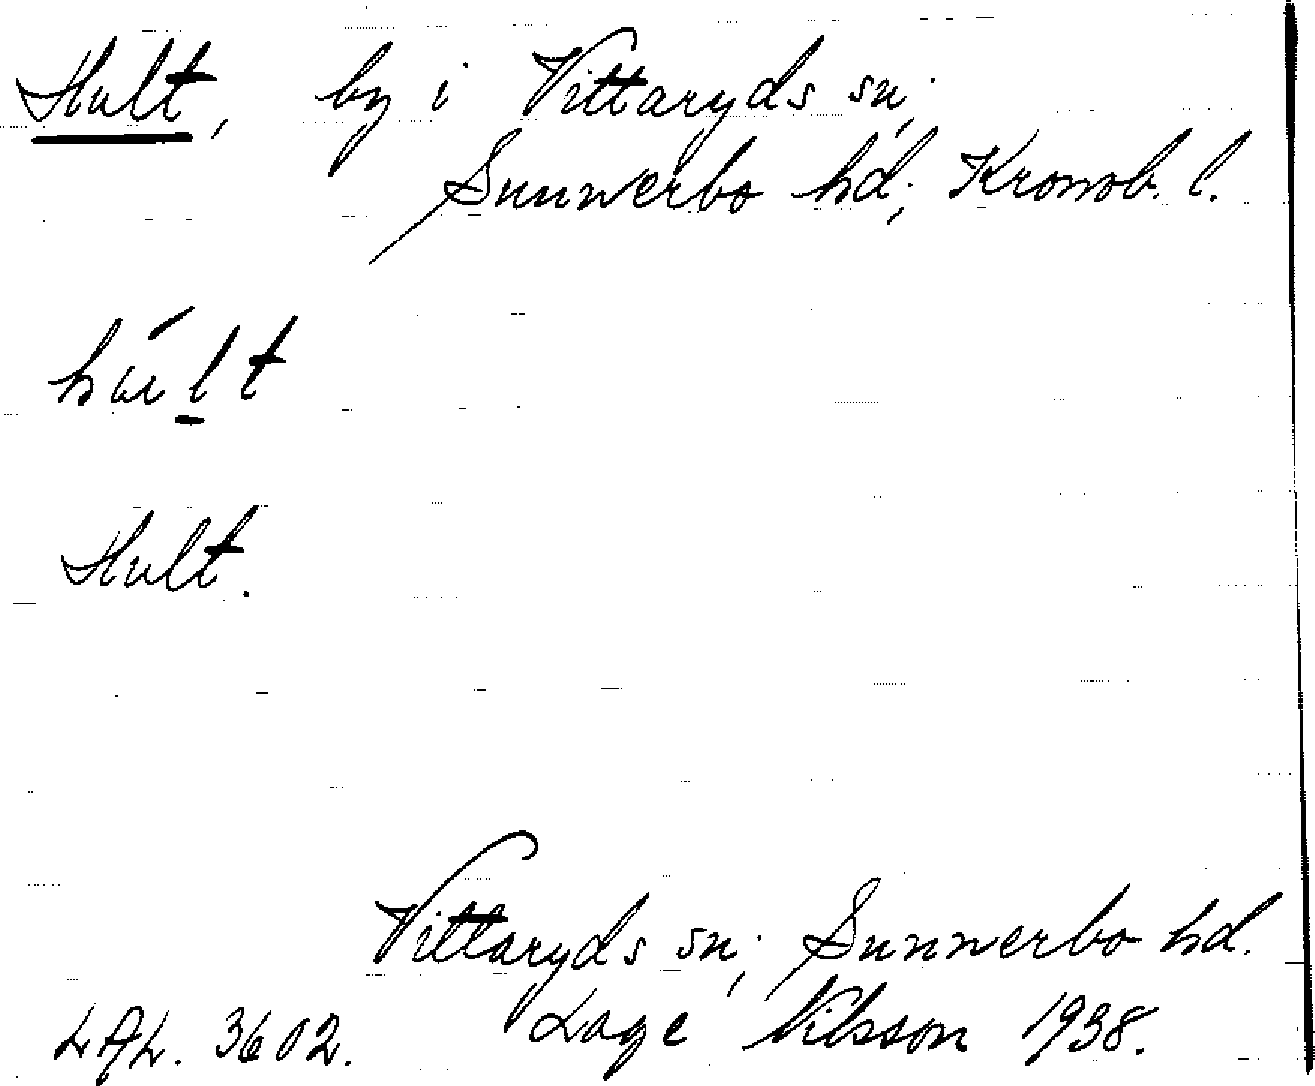 Hult, by i Vittaryds sn.,
Sunnerbo hd., Kronob. l.
húḻt
Hult.
Vittaryds sn., Sunnerbo hd.
LAL. 3602. Lage Nilsson 1938.